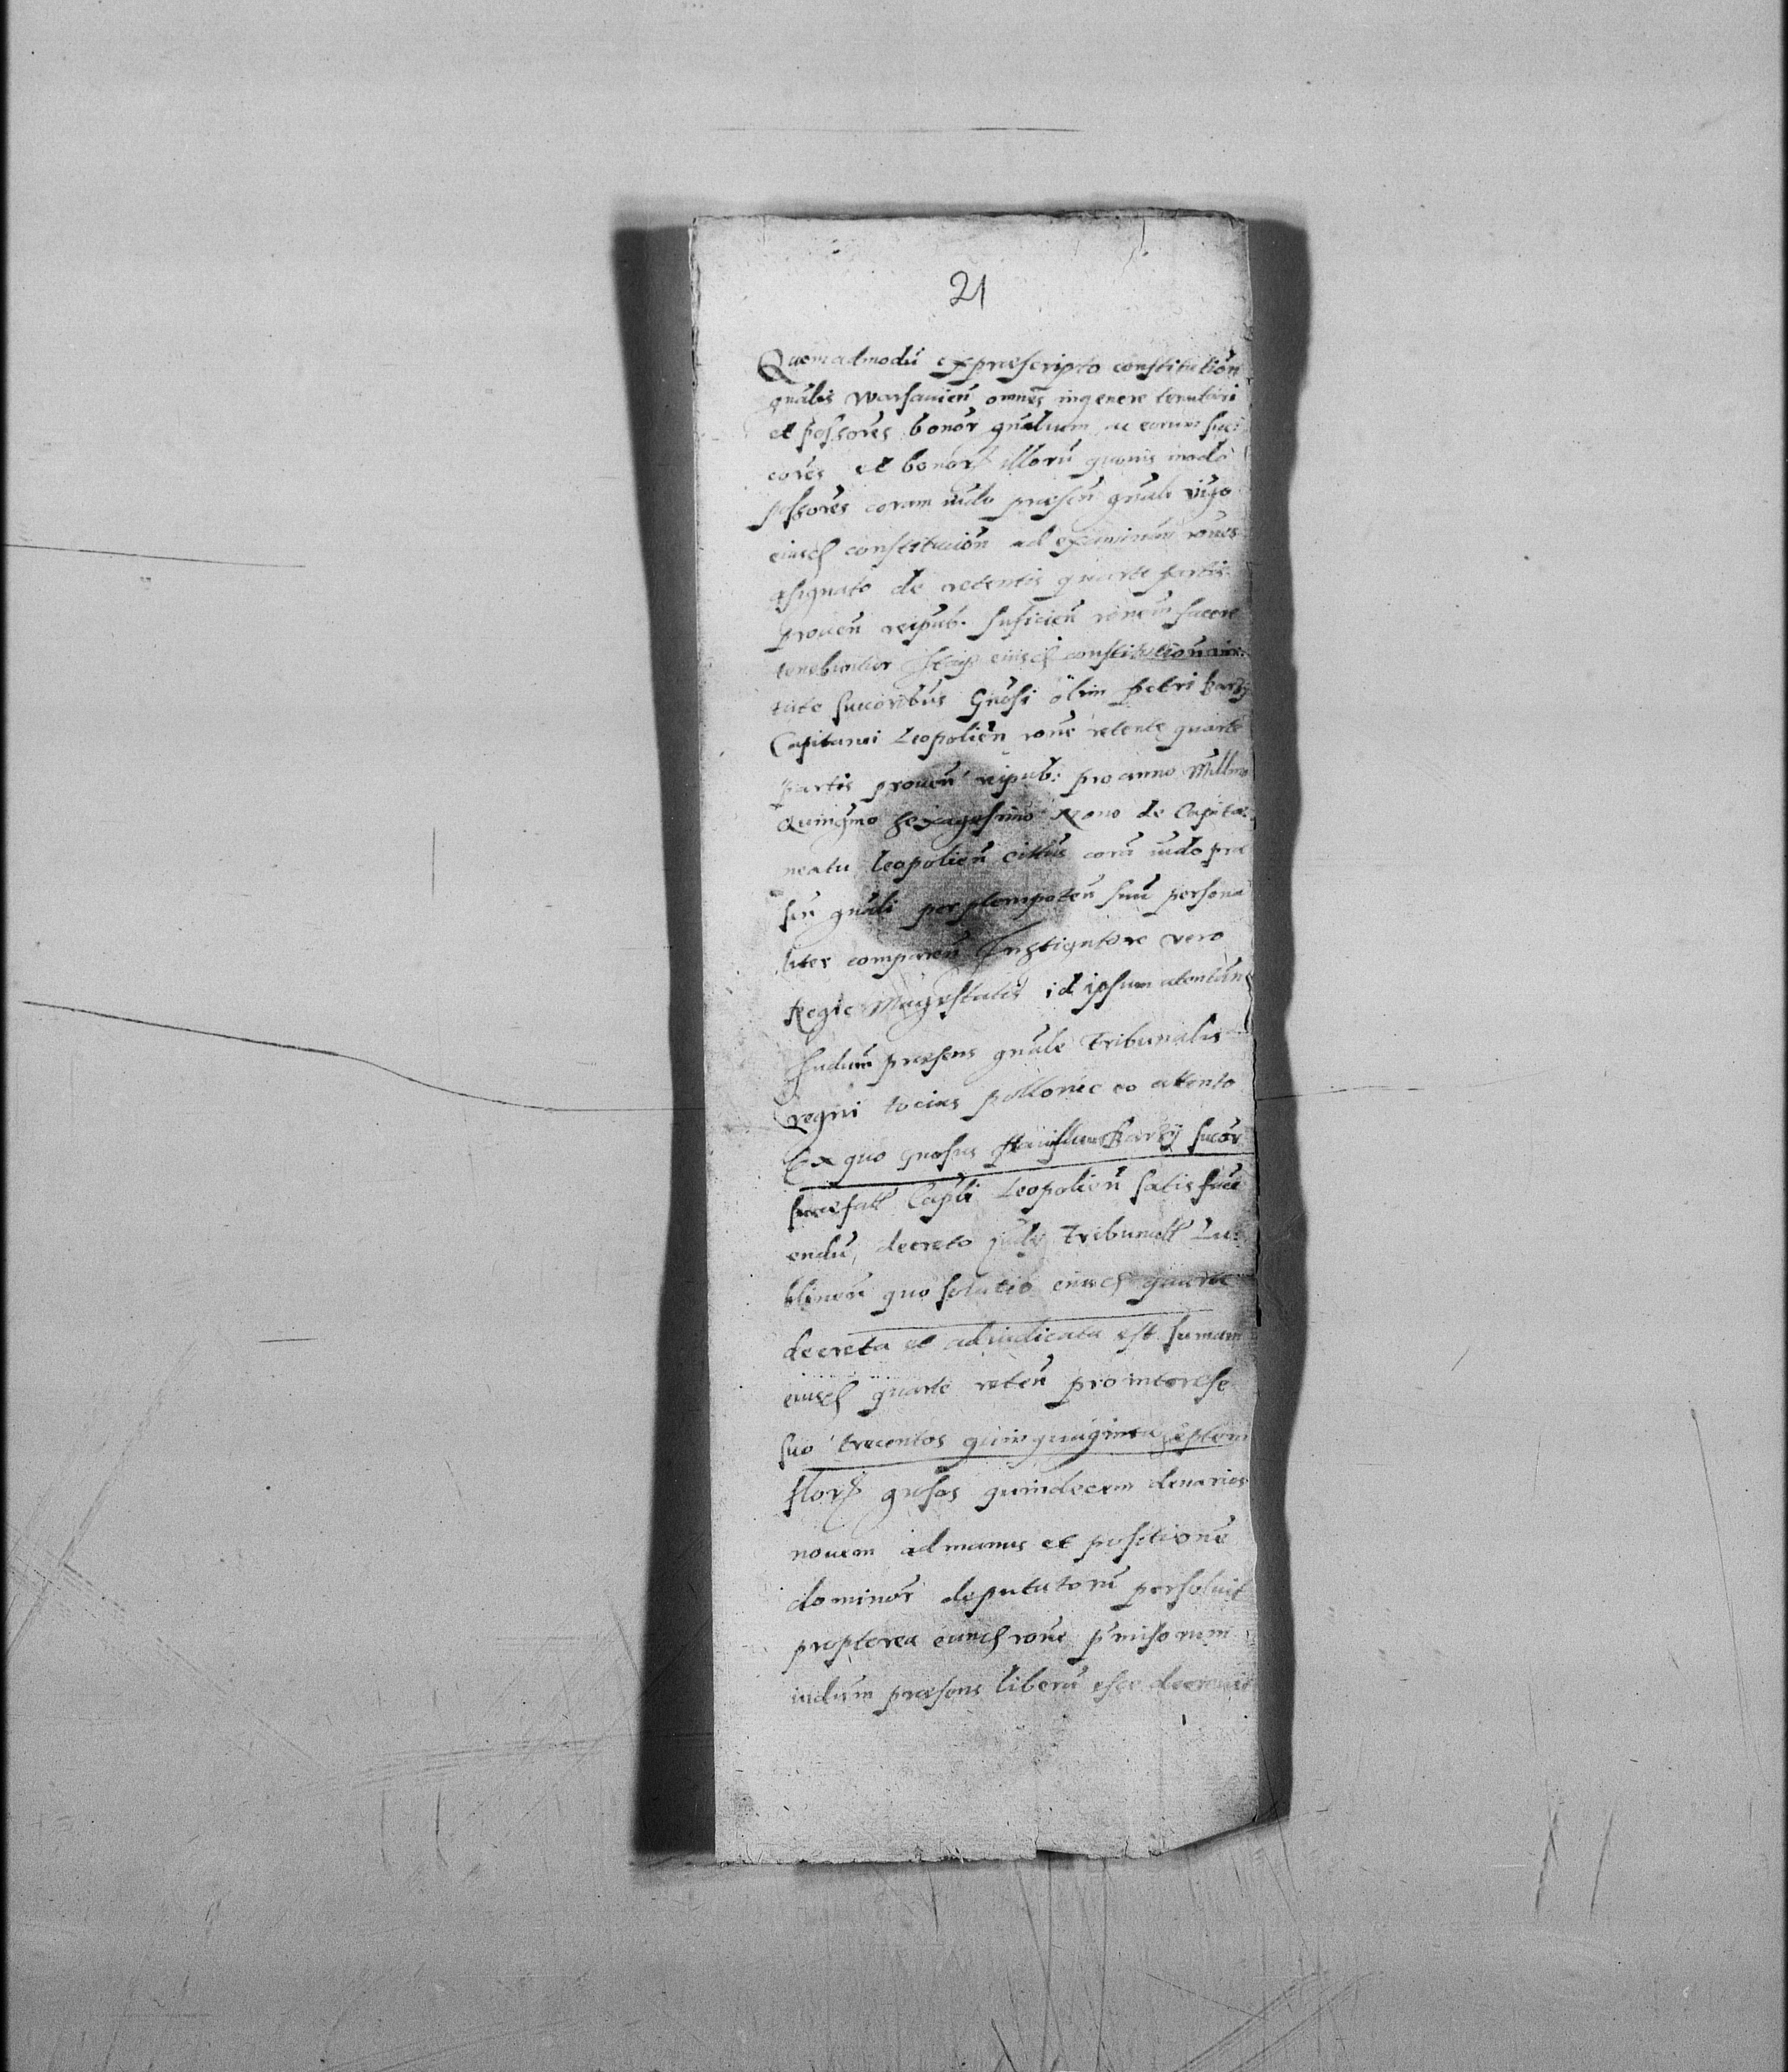 21
Quemadmodū ex praescripto constitution̄
gnālis Warsavien̄ omnes in genere tenutari
et possores bonor̄ gnālium ac eorum suc:
cores et bonor̄ illorū quovis modo
possores coram iudo praesen̄ gnāli vigo
eiusd constitucion̄ ad examinan̄ rones
asignato de retentis quarte partis
proven̄ reipub. suficien̄ ronem facere
tenebuntur Itaq eiusd constitution̄ vir:
tute succoribus Gnōsi olim Petri Barzy
Capitanei Leopolien̄ rone retente quarte
partis proven̄ reipub: pro anno Millmo
Quingmo Sexagesimo Nono de Capita:
neatu Leopolien̄ cittus corā iudo prae
sen̄ gnāli per plempoten̄ suū persona
liter comparen̄ Instigatore vero
Regie Magestatis id ipsum atentan̄
Iudum praesens gnāle Tribunalis
regni tocius pollonie eo attento
Ex quo gnosus Stanislaus Barzy succor
praefati Capti Leopolien̄ satisfaci
endū decreto Tribunalt Lu:
blinen̄ quo solutio eiusd quarte
decreta et adiudicata est sumam
eiusd quarte reten̄ pro interesse
suo trecentos quinquaginta septem
flor grosos quindecem denarios
novem ad manus et positione
dominor̄ deputatorū persoluit
propterea eund rone pmisorum
iudum praesens liberū esse decreuit